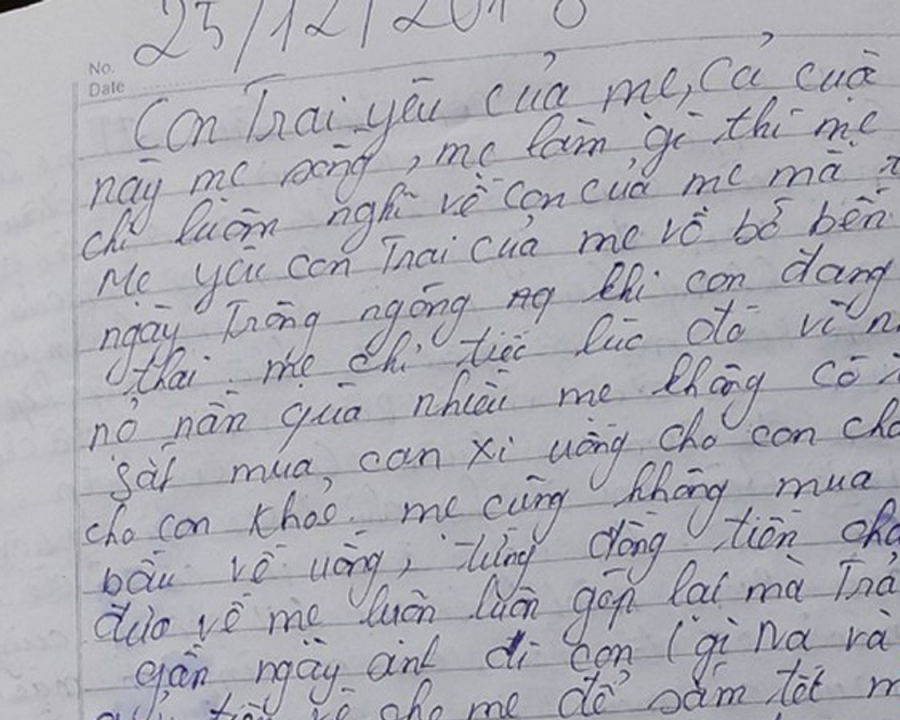 25/12/2018
No.
Date
Con Trai yêu của mẹ, Cả cuộ
này mẹ sống, mẹ làm gì thì mẹ
chỉ luôn nghĩ về con của mẹ mà
Mẹ yêu con Trai của mẹ vô bờ bến
ngày Trông ngóng khi con đang
thai. mẹ chỉ tiếc lúc đó vì n
nợ nần quá nhiều mẹ không có
sắt mua, can xi uống cho con cho
cho con khỏe. mẹ cũng không mua
bầu về uống, từng đồng tiền cha
đưa về mẹ luôn luôn góp lại mà Trả
gần ngày sinh đi con (gì Na và
cho mẹ để sắm tết m